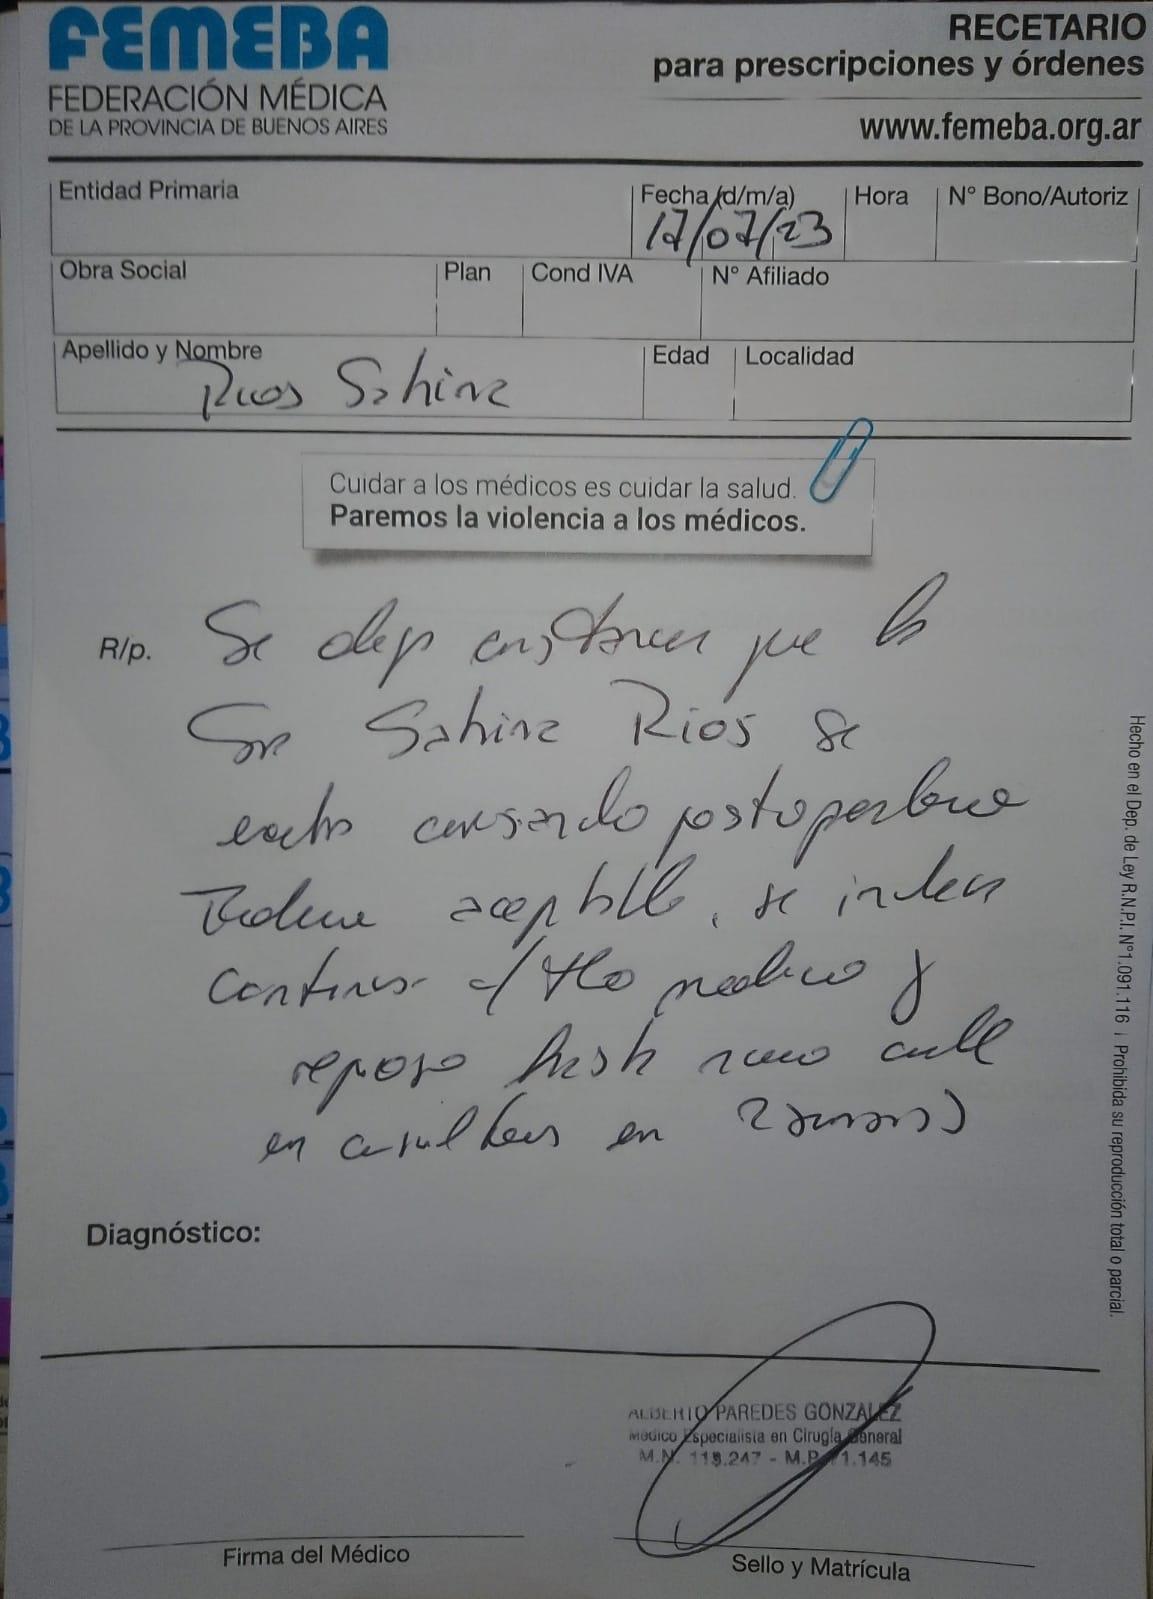 FEMEBA
FEDERACIÓN MÉDICA
DE LA PROVINCIA DE BUENOS AIRES
RECETARIO
para prescripciones y órdenes
www.femeba.org.ar
Entidad Primaria
Fecha (d/m/a)
17/07/23
Hora
N° Bono/Autoriz
Obra Social
Plan
Cond IVA
N° Afiliado
Apellido y Nombre
Rios Sabina
Edad
Localidad
Cuidar a los médicos es cuidar la salud.
Paremos la violencia a los médicos.
R/p.
Se deja constancia que la
Sra Sabina Rios se
cursando postoperatorio
aceptable, se indica
continuar c/ tto medico y
reposo hasta nuevo
en en 2 semanas
Diagnóstico:
ALBERTO PAREDES GONZALEZ
Médico Especialista en Cirugía General
M.N. 118.247 - M.P. 1.145
Firma del Médico
Sello y Matrícula
Hecho en el Dep. de Ley R.N.P.I. N°1.091.116 | Prohibida su reproducción total o parcial.